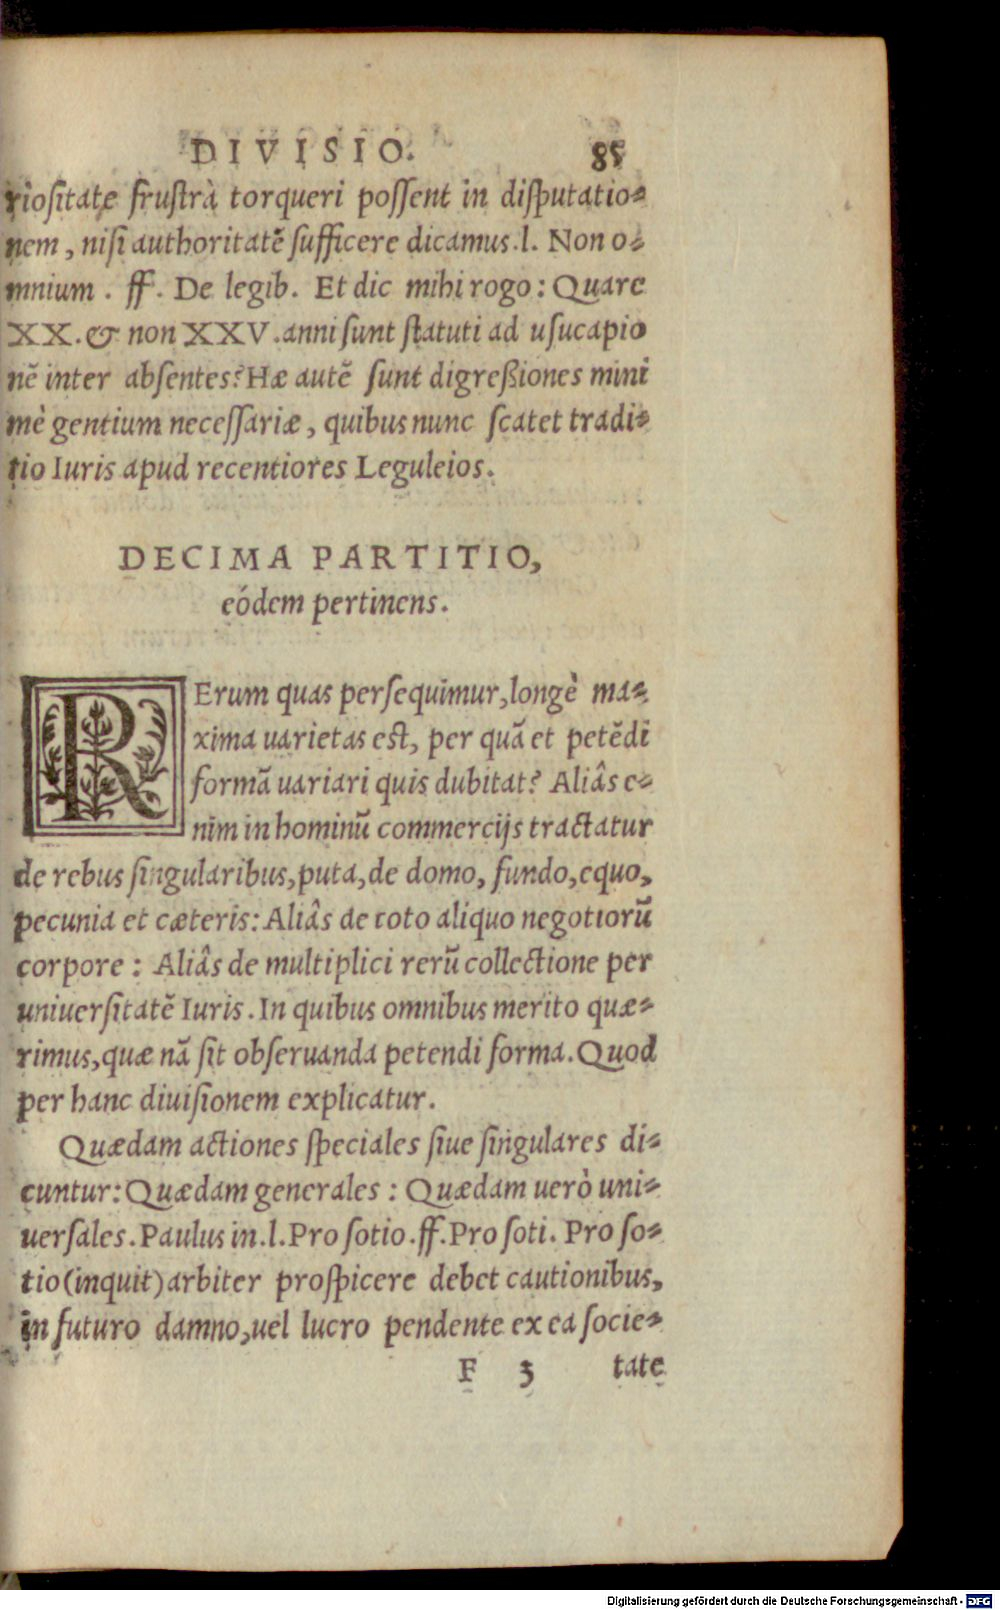 DIVISIO. 85
rioſitate fruſtrà torqueri poſſent in diſputatio-
nem, niſi authoritatẽ ſufficere dicamus.l. Non o-
mnium. ff. De legib. Et dic mihi rogo: Quare
XX. & non XXV. anni ſunt ſtatuti ad uſucapio
nẽ inter abſentes? Hæ autẽ ſunt digreßiones mini
mè gentium neceſſariæ, quibus nunc ſcatet tradi-
tio Iuris apud recentiores Leguleios.
DECIMA PARTITIO,
eódem pertinens.
RErum quas perſequimur, longè ma-
xima uarietas eſt, per quã et petẽdi
formã uariari quis dubitat? Aliâs e-
nim in hominũ commercijs tractatur
de rebus ſingularibus, puta, de domo, fundo, equo,
pecunia et cæteris: Aliâs de toto aliquo negotiorũ
corpore: Aliâs de multiplici rerũ collectione per
uniuerſitatẽ Iuris. In quibus omnibus merito quæ-
rimus, quæ nã ſit obſeruanda petendi forma. Quod
per hanc diuiſionem explicatur.
Quædam actiones ſpeciales ſiue ſingulares di-
cuntur: Quædam generales: Quædam uerò uni-
uerſales. Paulus in.l. Pro ſotio.ff. Pro ſoti. Pro ſo-
tio (inquit) arbiter proſpicere debet cautionibus,
in futuro damno, uel lucro pendente ex ea ſocie-
F 3 tate
Digitalisierung gefördert durch die Deutsche Forschungsgemeinschaft - DFG